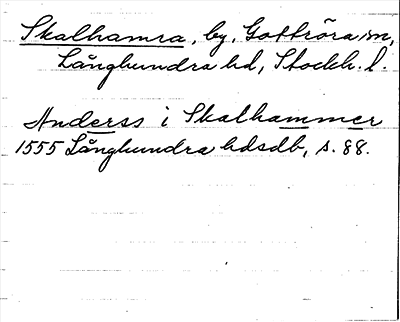 Skalhamra, by, Gottröra sn,
Långhundra hd, Stockh. l.
Anderss i Skalhammer
1555 Långhundra hdsdb, s. 88.